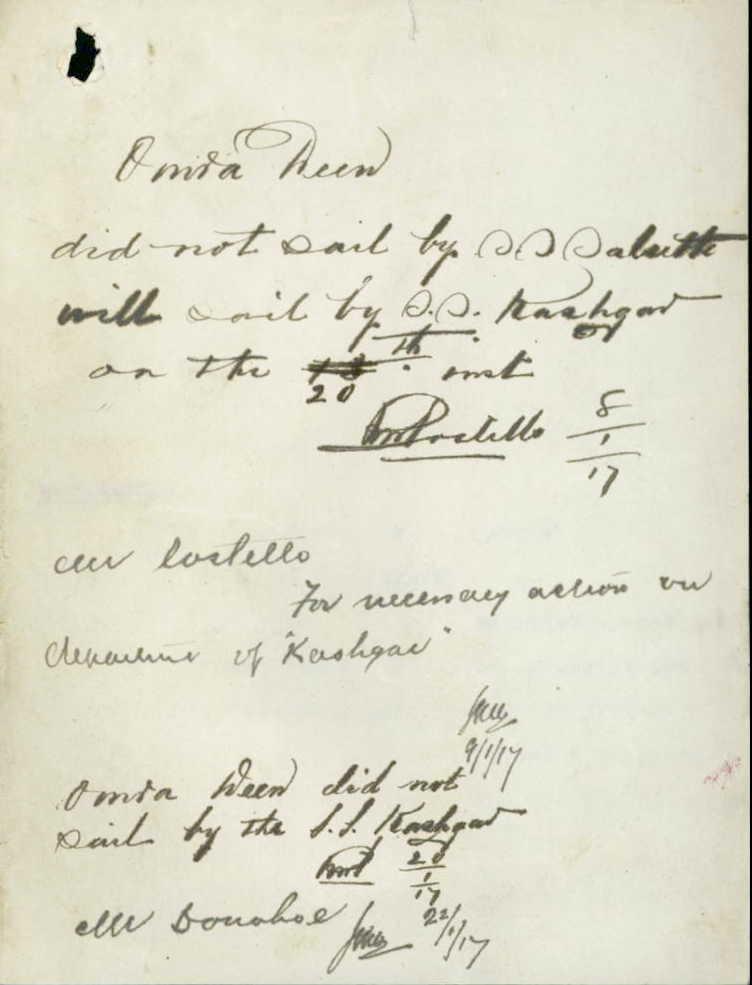 Omra Deen
did not sail by S S Salsette
will sail by S.S. Kashgar
on the 18 th inst
20
Costello 8/1/17
Mr Costello
For necessary action on
departure of "Kashgar"
9/1/17
Omra Deen did not
sail by the S.S. Kashgar
20/1/17
Mr Donohoe 22/1/17